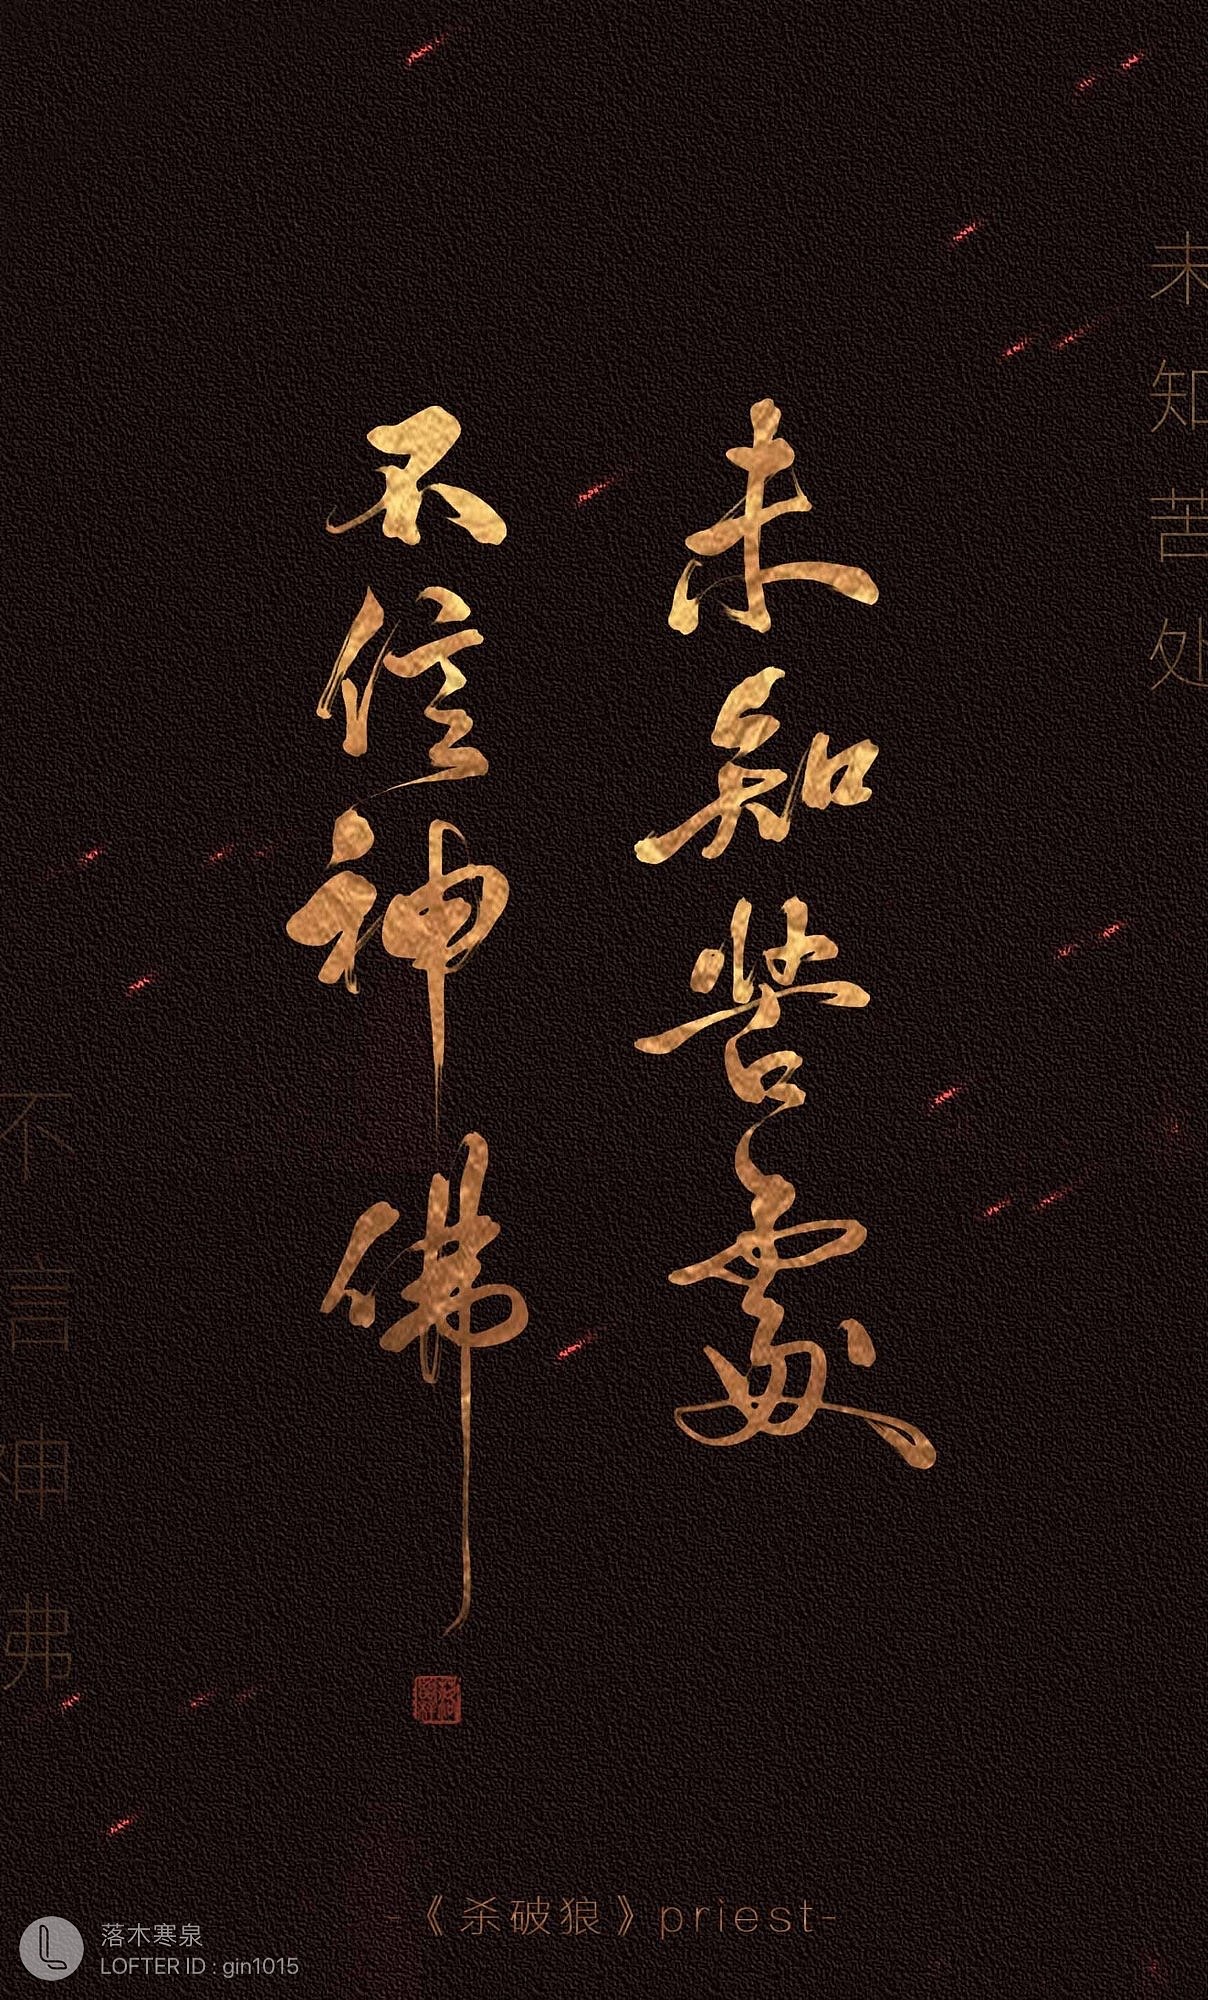 未知苦處
不信神佛
未知苦处
不信神佛
-《杀破狼》priest-
落木寒泉
LOFTER ID : gin1015